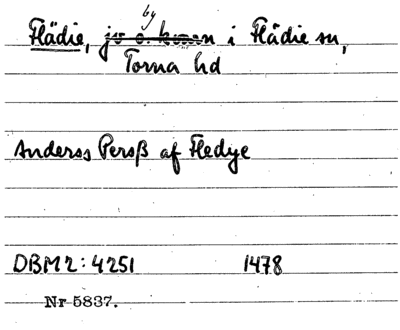 by
Flädie, jo o. konon i Flädie sn,
Torna hd
Anderss Persß af Fledye
DBM 2: 4251 1478
Nr 5837.